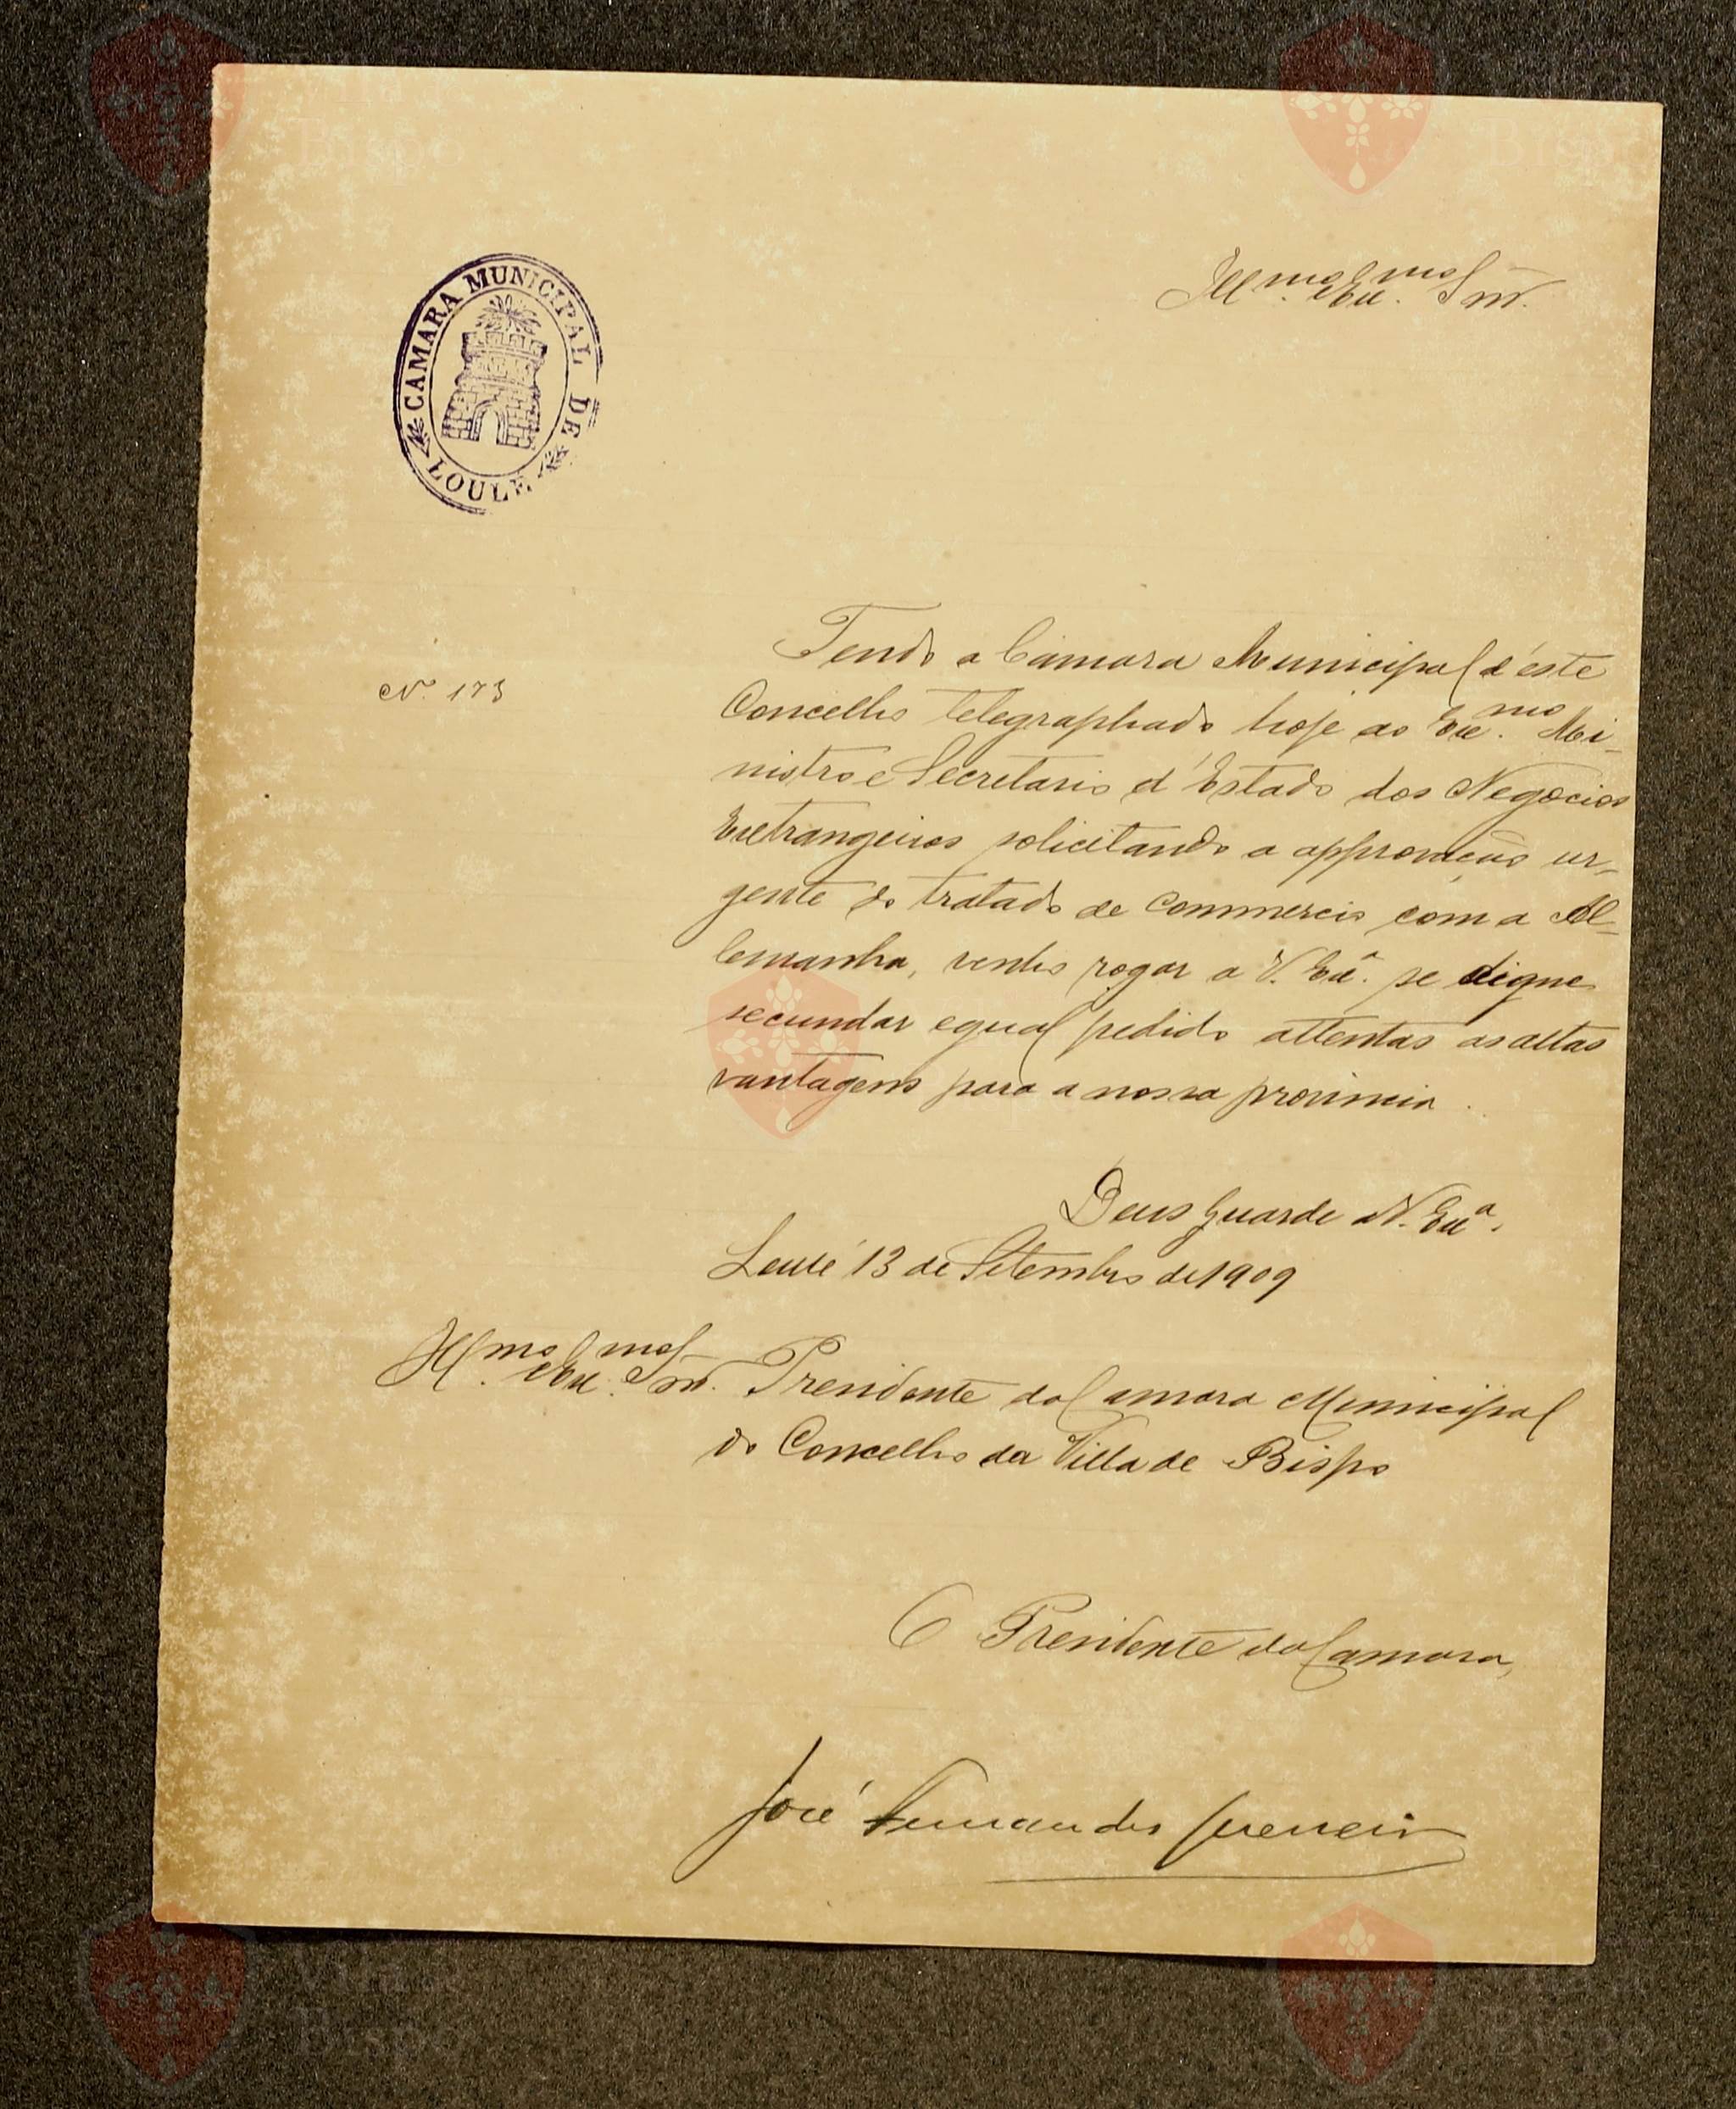 CAMARA MUNICIPAL DE LOULÉ
Illmo. Exmo. Snr.
Nº 173
Tendo a Camara Municipal d'este
Concelho telegraphado hoje ao Exmo. Mi-
nistro e Secretario d'Estado dos Negocios
Extrangeiros solicitando a approvação ur-
gente do tratado de Commercio com a Al-
lemanha, venho rogar a V. Exª. se digne
secundar egual pedido attentas as altas
vantagens para a nossa provincia.
Deus Guarde a V. Exª.
Loulé 13 de Setembro de 1909
Illmo. Exmo. Snr. Presidente da Camara Municipal
do Concelho da Villa de Bispo
O Presidente da Camara,
José Fernandes Guerreiro
Vila
Bispo
Bispo
Vila
Bispo
Bispo